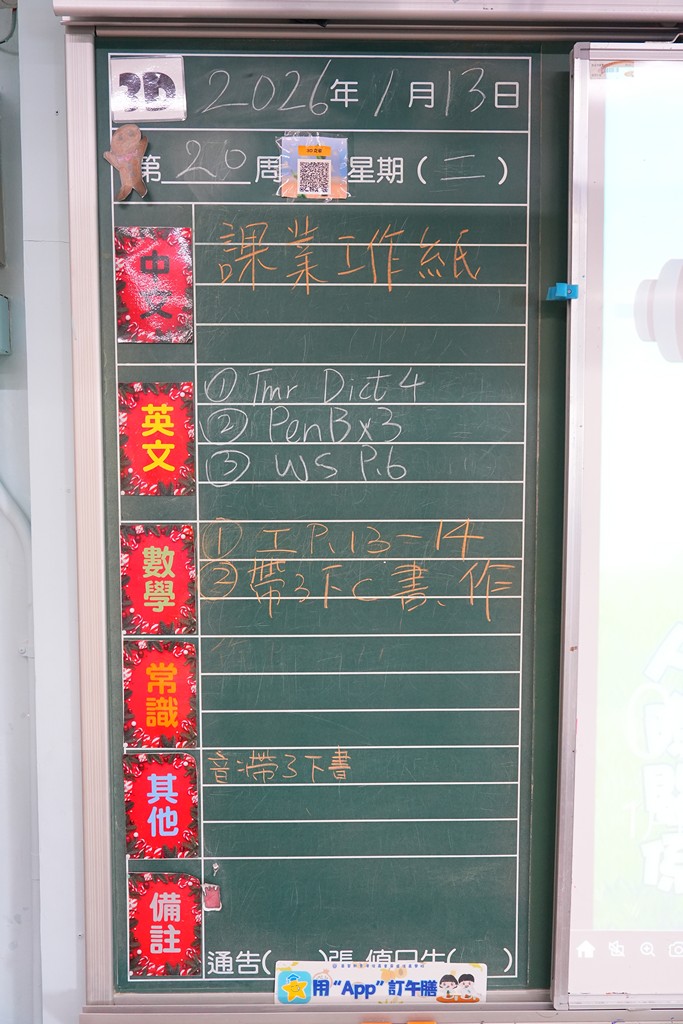 3D 2026年 1月 13日
第 20 周 星期 ( 二 )
中文
課業工作紙
英文
① Tmr Dict 4
② PenB x3
③ WS P.6
數學
① 工 P.13-14
② 帶3下C書、作
常識
其他
音:帶3下書
備註
通告( )張
用 “App” 訂午膳